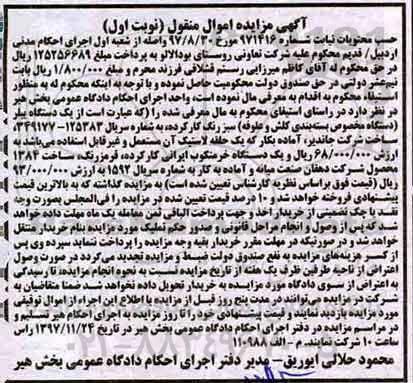 آگهی مزایده اموال منقول (نوبت اول)
حسب محتویات ثبابت شماره ۹۷۱۴۱۶ مورخ ۹۷/۸/۳۰ واصله از شعبه اول اجرای احکام مدنی
اردبیل/ قدیم محکوم علیه شرکت تعاونی روستای بودالالو به پرداخت مبلغ ۱۲۵۲۵۶۶۸۹
در حق محکوم له آقای کاظم میرزایی رستم قشلاقی فرزند محرم و مبلغ ۱/۸۰۰/۰۰۰ ریال بابت
نیم‌عشر دولتی در حق صندوق دولت محکومیت حاصل نموده و با توجه به اینکه محکوم له به منظور
استیفاء محکوم به اقدام به معرفی مال نموده است، واحد اجرای احکام دادگاه عمومی بخش هیر
در نظر دارد در راستای استیفای محکوم به مال معرفی شده را (که عبارت است از یک دستگاه بیلر
(دستگاه مخصوص بسته‌بندی کلش و علوفه) سبز رنگ کارکرده، به شماره سریال ۱۲۵۳۸۳-۳۴۹۱۷۷
ساخت شرکت جاندیر، آماده بکار که یک حلقه لاستیک آن مستعمل و غیرقابل استفاده می‌باشد به
ارزش ۶۸/۰۰۰/۰۰۰ ریال و یک دستگاه خرمنکوب ایرانی کارکرده، قرمزرنگ، ساخت ۱۳۸۴
محصول شرکت دهقان صنعت میانه و آماده به کار به شماره سریال ۱۵۹۲ به ارزش ۹۳/۰۰۰/۰۰۰
ریال (قیمت فوق براساس نظریه کارشناسی تعیین شده است) به مزایده گذاشته که به بالاترین قیمت
پیشنهادی فروخته خواهد شد و ۱۰ درصد قیمت تعیین شده در مزایده را فی‌المجلس بصورت وجه
نقد یا چک تضمینی از خریدار اخذ و جهت پرداخت الباقی ثمن معامله یک ماه مهلت داده خواهد
شد که پس از وصول و انجام مراحل قانونی و صدور حکم تملیک مورد مزایده بنام خریدار منتقل
خواهد شد و در صورتیکه در مهلت مقرر خریدار بقیه وجه مزایده را پرداخت ننماید سپرده وی پس
از کسر هزینه‌های مزایده به نفع صندوق دولت ضبط و مزایده تجدید می‌گردد در صورت وصول
اعتراض از ناحیه طرفین ظرف یک هفته از تاریخ مزایده نسبت به نحوه انجام مزایده، تا رسیدگی
به اعتراض از سوی دادگاه مورد مزایده به خریدار تحویل داده نخواهد شد ضمنا متقاضیان به
شرکت در مزایده می‌توانند در مدت پنج روز قبل از مزایده با اطلاع این اجراء از اموال توقیفی
مورد مزایده بازدید نمایند و قیمت پیشنهادی خود را تا روز مزایده به اجرای احکام هیر تسلیم و
در مراسم مزایده در دفتر اجرای احکام دادگاه عمومی بخش هیر در تاریخ ۱۳۹۷/۱۱/۲۴ راس
ساعت ۱۰ شرکت نمایند. م - الف ۱۱۰۹۸۸
محمود حلالی ایوریق- مدیر دفتر اجرای احکام دادگاه عمومی بخش هیر